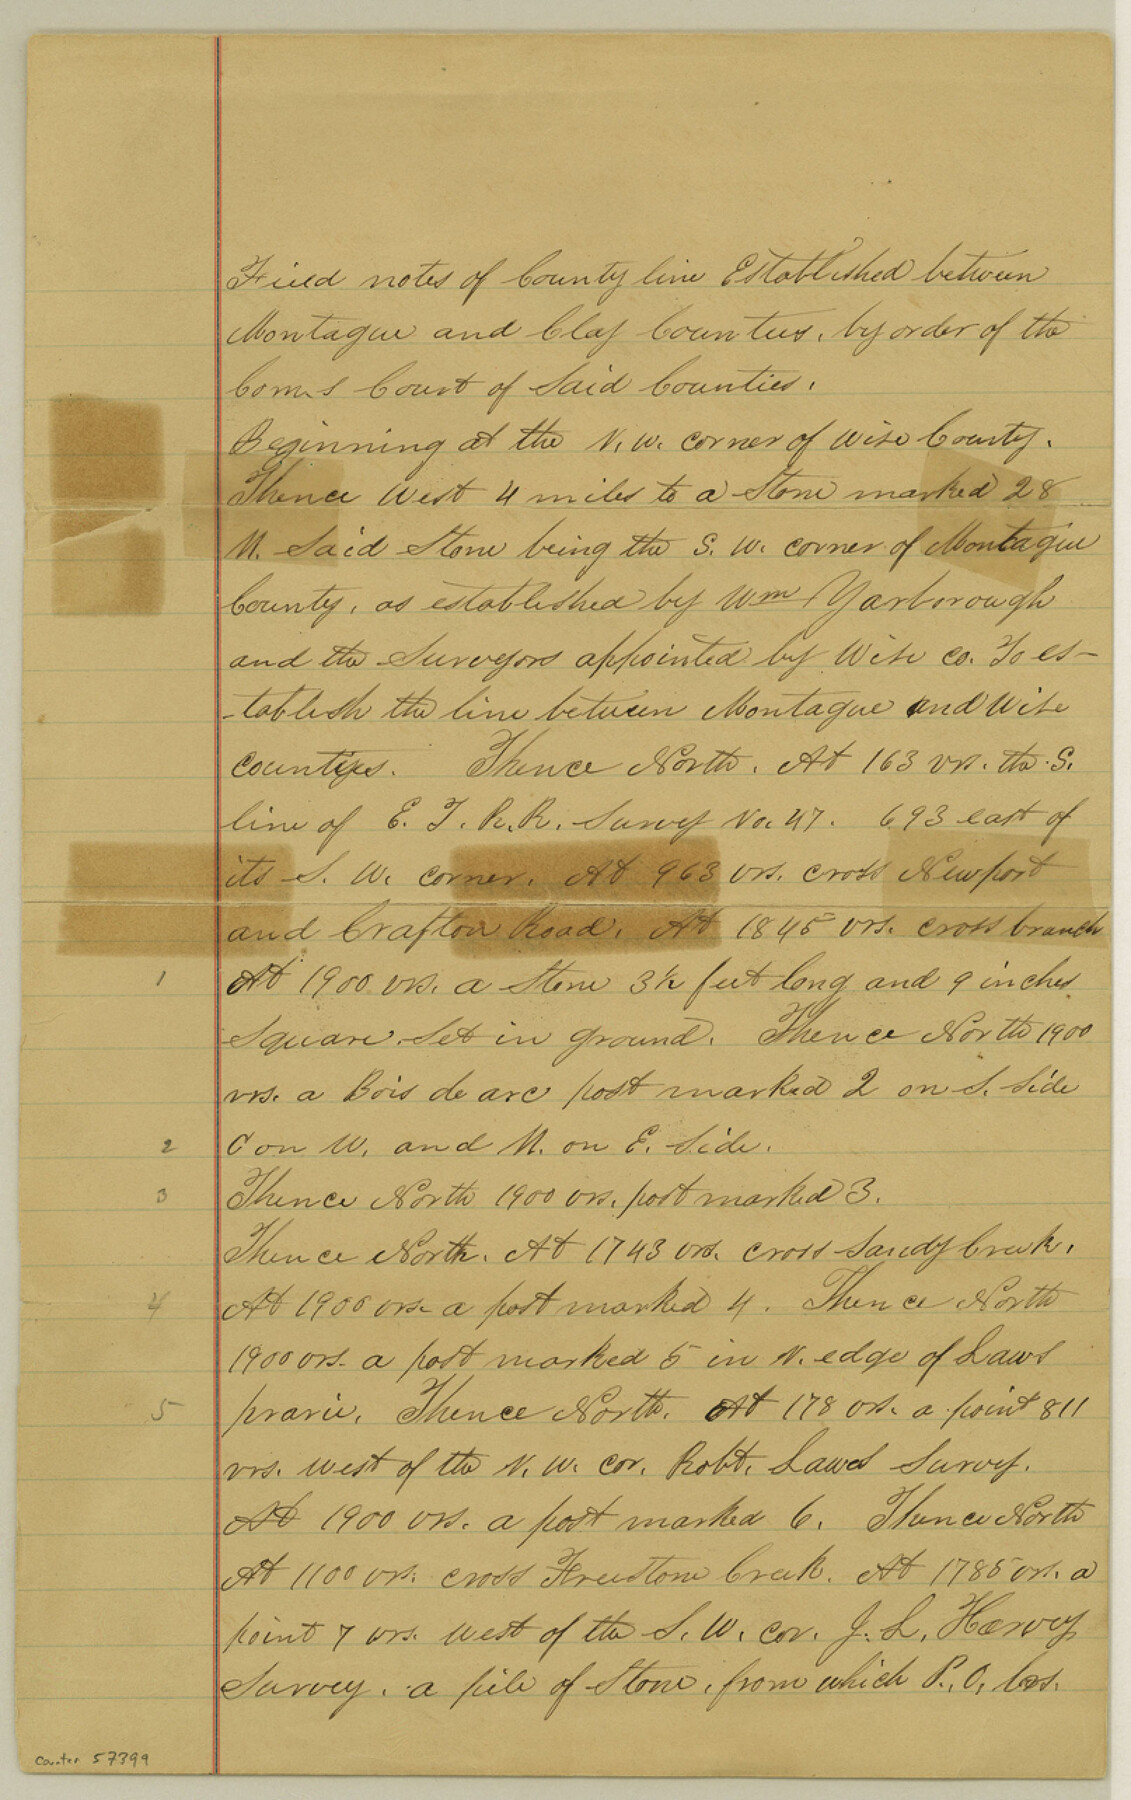 Field notes of County line Established between
Montague and Clay Counties, by order of the
Coms Court of Said Counties.
Beginning at the N. W. corner of Wise County.
Thence West 4 miles to a Stone marked 28
M. Said Stone being the S. W. corner of Montague
County, as established by Wm Yarborough
and the Surveyors appointed by Wise co. To es-
-tablish the line between Montague and Wise
counties. Thence North. At 163 vrs. the S.
line of E. T. R. R. Survey No. 47. 693 east of
its S. W. corner. At 963 vrs. cross Newport
and Crafton Road. At 1845 vrs. cross branch
1 At 1900 vrs. a Stone 3½ feet long and 9 inches
Square set in ground. Thence North 1900
vrs. a Bois de arc post marked 2 on S. Side
2 C on W. and M. on E. Side.
3 Thence North 1900 vrs. post marked 3.
Thence North. At 1743 vrs. cross Sandy Creek.
4 At 1900 vrs. a post marked 4. Thence North
1900 vrs. a post marked 5 in N. edge of Laws
5 prarie. Thence North. At 178 vrs. a point 811
vrs. west of the N. W. cor. Robt. Laws Survey.
At 1900 vrs. a post marked 6. Thence North
At 1100 vrs. cross Freestone Creek. At 1785 vrs. a
point 7 vrs. west of the S. W. cor. J. L. Harvey
Survey. a pile of Stone, from which P. O. brs.
Counter 57399